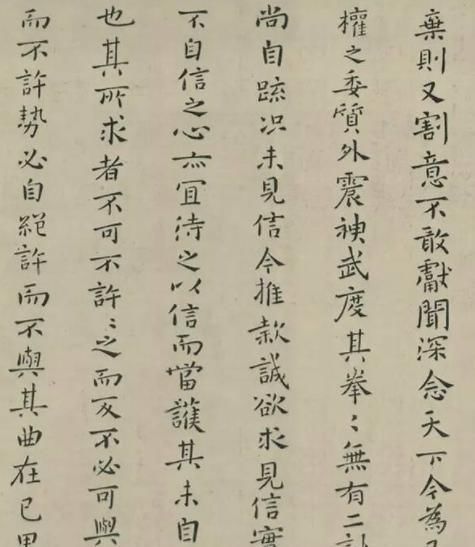 棄則又割意不敢獻聞深念天下今為
權之委質外震神武度其拳〻無有二計
尚自踈况未見信今推款誠欲求見信實
不自信之心亦宜待之以信而當護其未自
也其所求者不可不許〻之而反不必可與
而不許勢必自絕許而不與其曲在己里